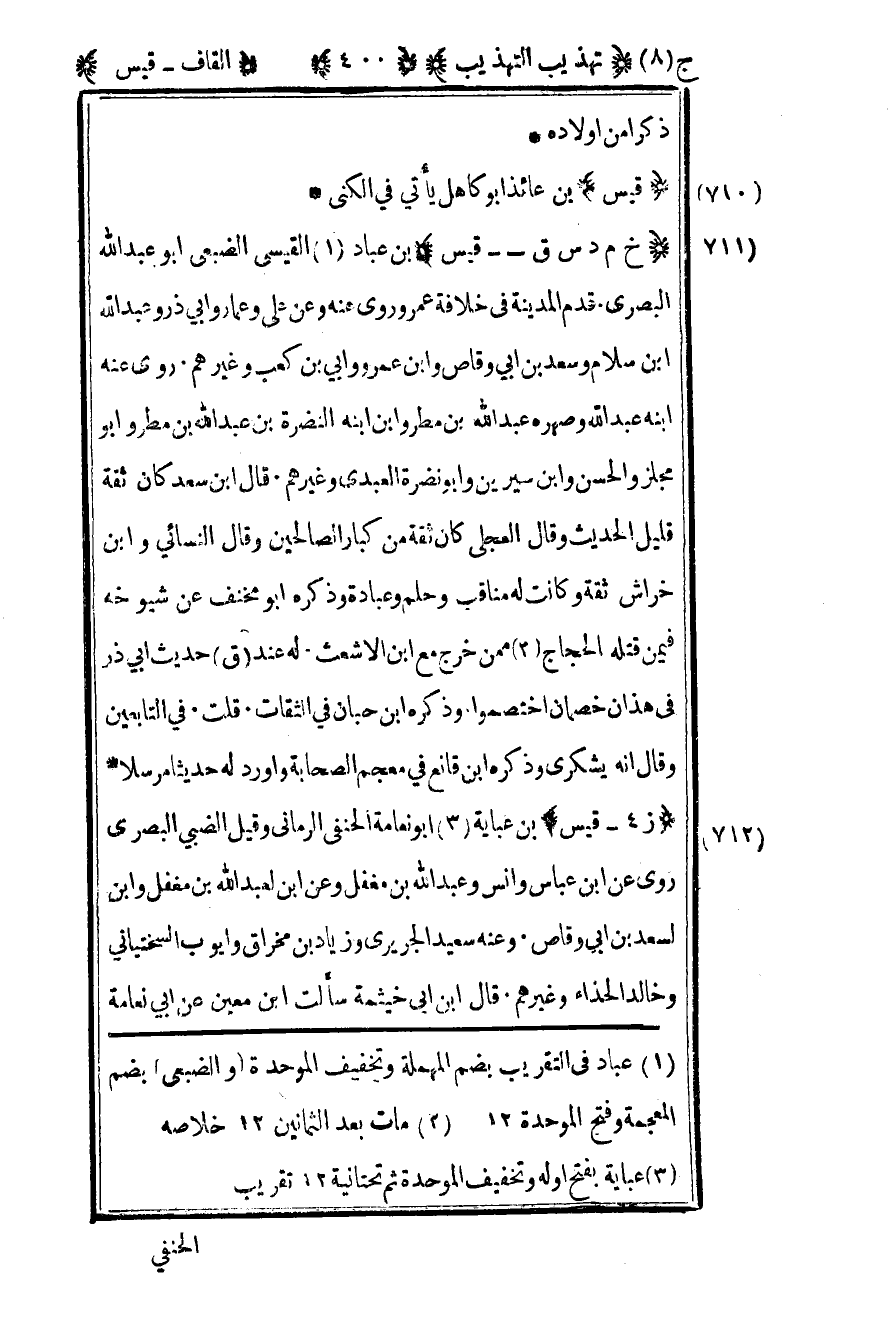 ج (٨) ﴿ تهذيب التهذيب ﴾ ﴿ ٤٠٠ ﴾ ﴿ القاف ـ قيس ﴾
ذكرا من اولاده *
(٧١٠) ﴿ قيس ﴾ بن عائذ ابو كاهل يأتي في الكنى *
(٧١١ ﴿ خ م د س ق ـ ـ قيس ﴾ بن عباد (١) القيسي الضبعى ابو عبدالله
البصرى . قدم المدينة فى خلافة عمر وروى عنه وعن على وعمار وابي ذر وعبدالله
ابن سلام وسعد بن ابي وقاص وابن عمر وابي بن كعب وغيرهم . روى عنه
ابنه عبدالله وصهره عبدالله بن مطر وابن ابنه النضرة بن عبدالله بن مطر وابو
مجلز والحسن وابن سيرين وابو نضرة العبدى وغيرهم . قال ابن سعد كان ثقة
قليل الحديث وقال العجلى كان ثقة من كبار الصالحين وقال النسائي و ابن
خراش ثقة وكانت له مناقب وحلم وعبادة وذكره ابو مخنف عن شيوخه
فيمن قتله الحجاج (٢) ممن خرج مع ابن الاشعث . له عند (ق) حديث ابي ذر
فى هذان خصمان اختصموا . وذكره ابن حبان في الثقات . قلت . في التابعين
وقال انه يشكرى وذكره ابن قانع في معجم الصحابة واورد له حديثا مرسلا *
(٧١٢) ﴿ ز ٤ ـ قيس ﴾ بن عباية (٣) ابو نعامة الحنفى الرمانى وقيل الضبي البصرى
روى عن ابن عباس وانس وعبدالله بن مغفل وعن ابن لعبدالله بن مغفل وابن
لسعد بن ابي وقاص . وعنه سعيد الجريرى وزياد بن مخراق وايوب السختياني
وخالد الحذاء وغيرهم . قال ابن ابى خيثمة سألت ابن معين عن ابي نعامة
(١) عباد فى التقريب بضم المهملة وتخفيف الموحدة (و الضبعى) بضم
المعجمة وفتح الموحدة ١٢ (٢) مات بعد الثمانين ١٢ خلاصه
(٣) عباية بفتح اوله وتخفيف الموحدة ثم تحتانية ١٢ تقريب
الحنفي